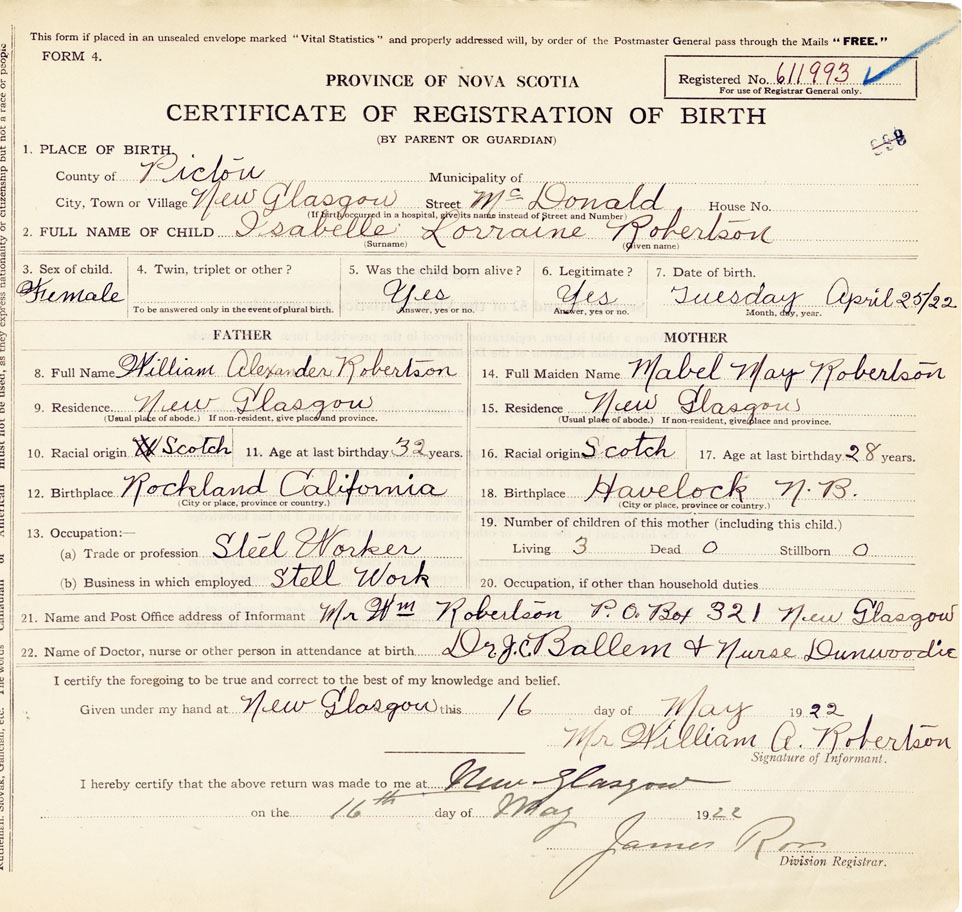 This form if placed in an unsealed envelope marked "Vital Statistics" and properly addressed will, by order of the Postmaster General pass through the Mails "FREE."
FORM 4.
Registered No. 611993
For use of Registrar General only.
PROVINCE OF NOVA SCOTIA
CERTIFICATE OF REGISTRATION OF BIRTH
(BY PARENT OR GUARDIAN)
1. PLACE OF BIRTH,
County of Pictou Municipality of
City, Town or Village New Glasgow Street McDonald House No.
(If birth occurred in a hospital, give its name instead of Street and Number)
2. FULL NAME OF CHILD Isabelle Lorraine Robertson
(Surname) (Given name)
3. Sex of child. 4. Twin, triplet or other? 5. Was the child born alive? 6. Legitimate? 7. Date of birth.
Female Yes Yes Tuesday April 25/22
To be answered only in the event of plural birth. Answer, yes or no. Answer, yes or no. Month, day, year.
FATHER MOTHER
8. Full Name William Alexander Robertson 14. Full Maiden Name Mabel May Robertson
9. Residence New Glasgow 15. Residence New Glasgow
(Usual place of abode.) If non-resident, give place and province. (Usual place of abode.) If non-resident, give place and province.
10. Racial origin Scotch 11. Age at last birthday 32 years. 16. Racial origin Scotch 17. Age at last birthday 28 years.
12. Birthplace Rockland California 18. Birthplace Havelock N.B.
(City or place, province or country.) (City or place, province or country.)
13. Occupation:— 19. Number of children of this mother (including this child.)
(a) Trade or profession Steel Worker Living 3 Dead 0 Stillborn 0
(b) Business in which employed Stell Work 20. Occupation, if other than household duties
21. Name and Post Office address of Informant Mr Wm Robertson P.O. Box 321 New Glasgow
22. Name of Doctor, nurse or other person in attendance at birth. Dr. J.C. Ballem & Nurse Dunwoodie
I certify the foregoing to be true and correct to the best of my knowledge and belief.
Given under my hand at New Glasgow this 16 day of May 1922
Mr William A. Robertson
Signature of Informant.
I hereby certify that the above return was made to me at New Glasgow
on the 16th day of May 1922
James Ross
Division Registrar.
Ruthenian, Slovak, Galician, etc. The words Canadian or American must not be used, as they express nationality or citizenship but not a race or people